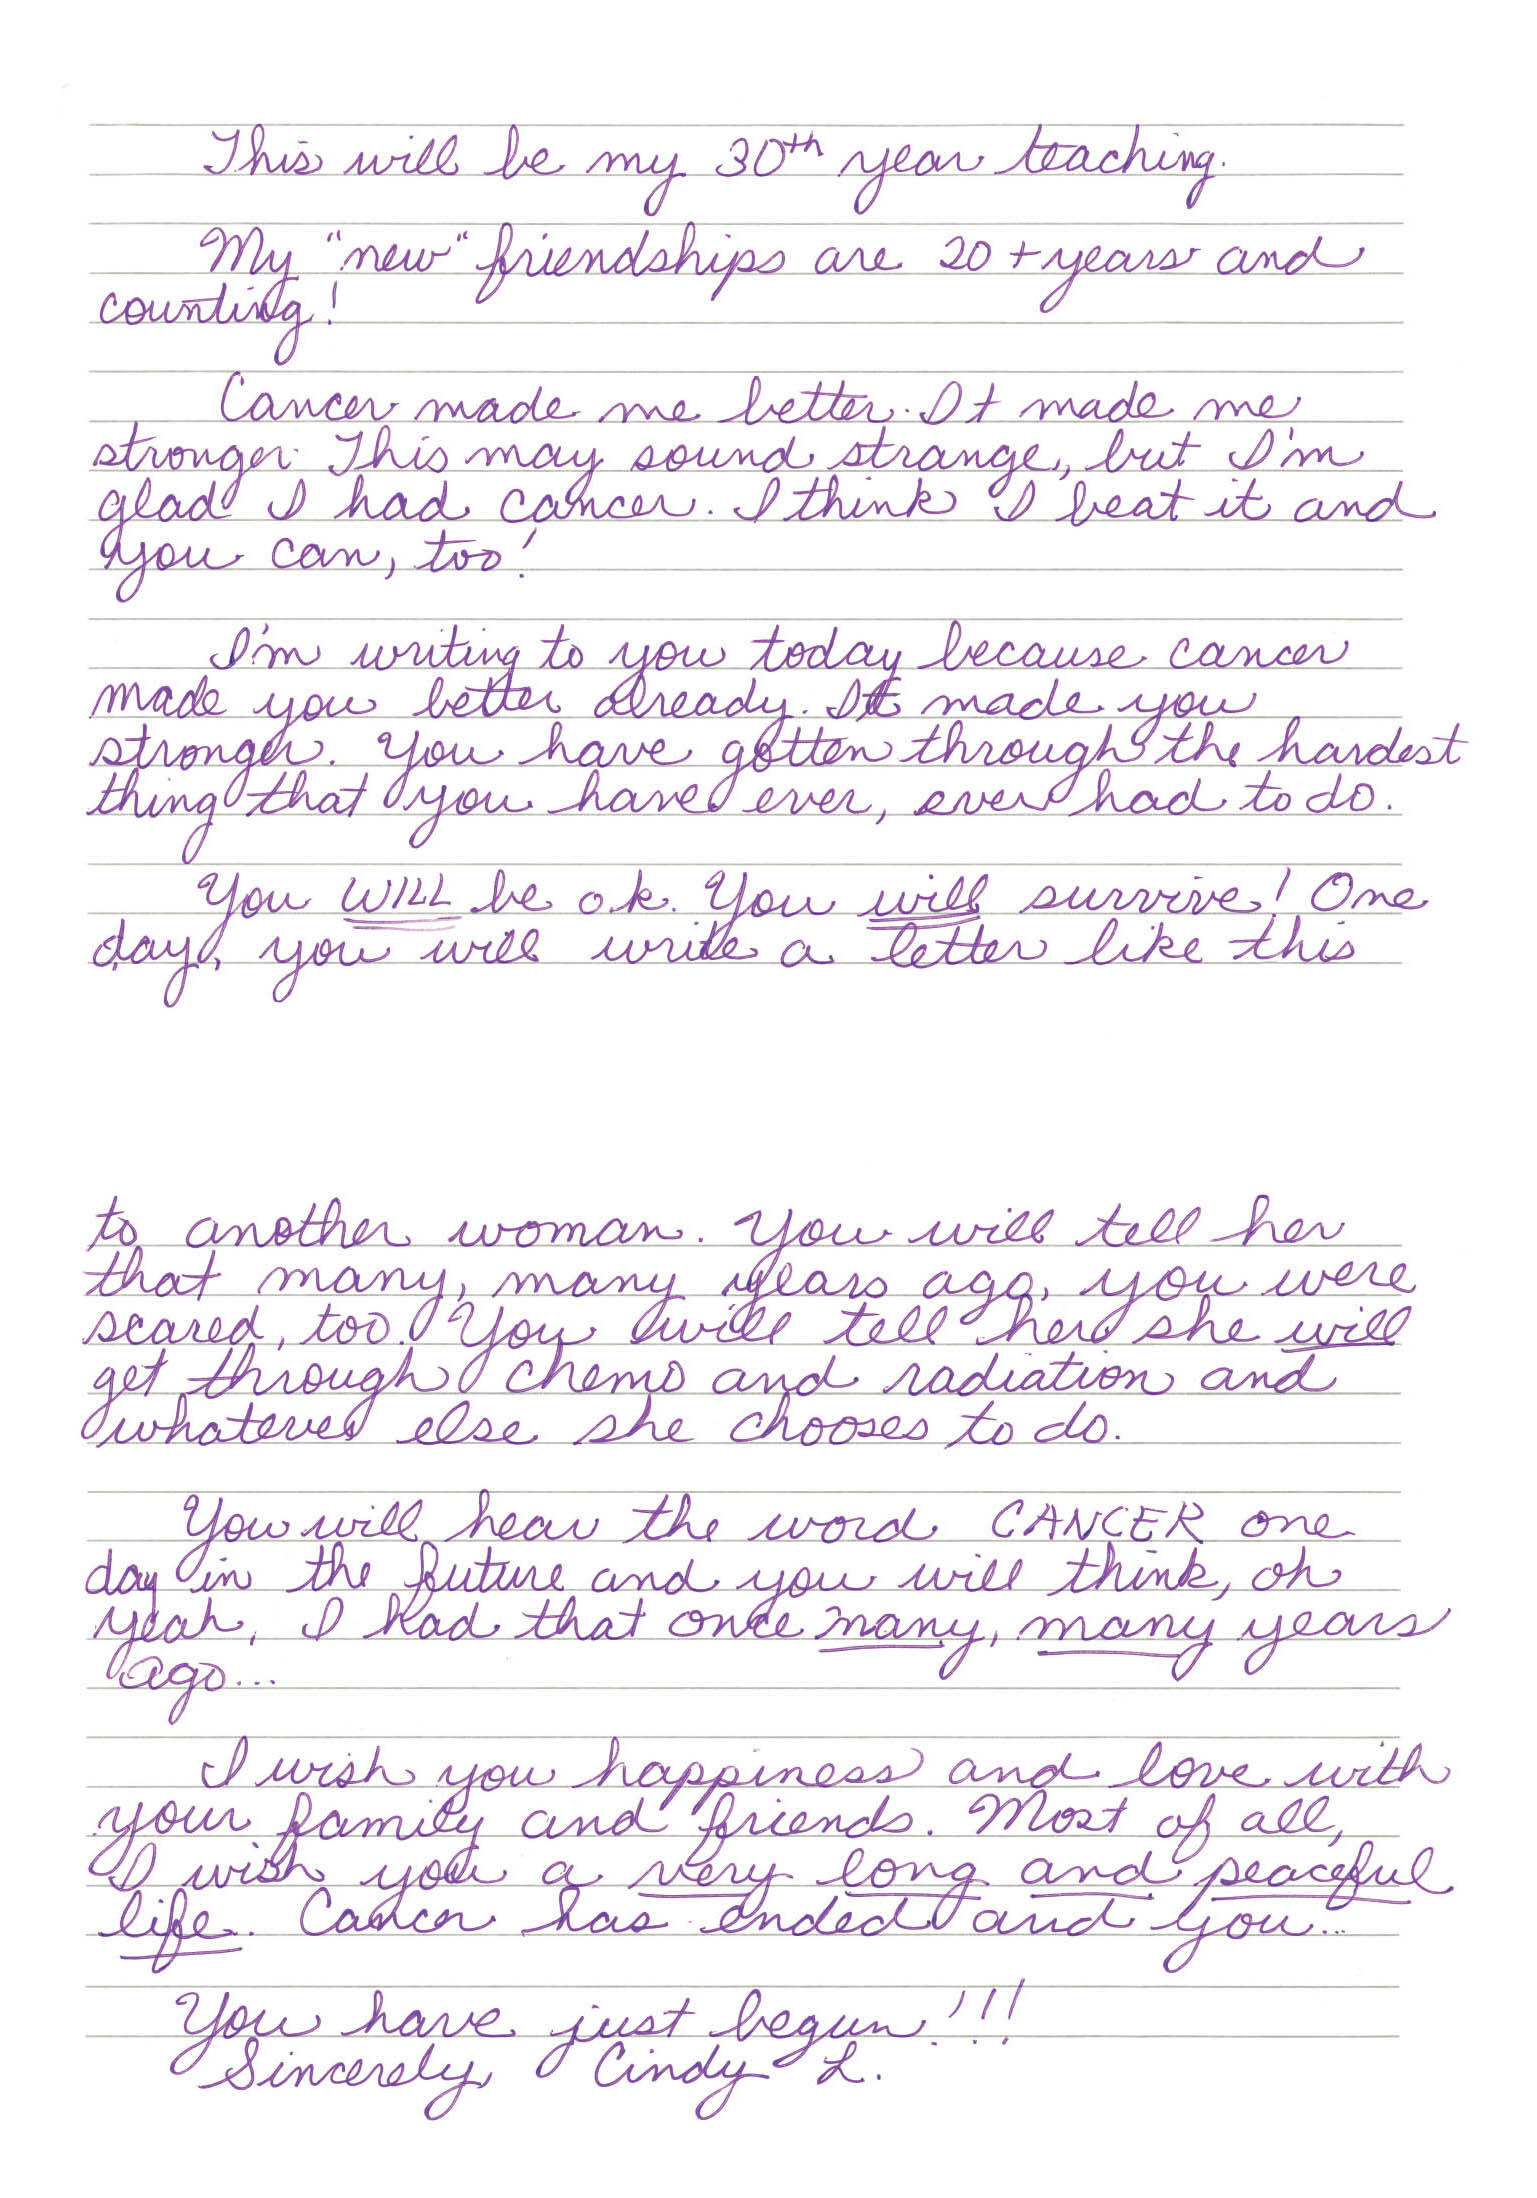 This will be my 30th year teaching.
My "new" friendships are 20+ years and
counting!
Cancer made me better. It made me
stronger. This may sound strange, but I'm
glad I had cancer. I think I beat it and
you can, too!
I'm writing to you today because cancer
made you better already. It made you
stronger. You have gotten through the hardest
thing that you have ever, ever had to do.
You WILL be ok. You will survive! One
day, you will write a letter like this
to another woman. You will tell her
that many, many years ago, you were
scared, too. You will tell her she will
get through chemo and radiation and
whatever else she chooses to do.
You will hear the word CANCER one
day in the future and you will think, oh
yeah, I had that once many, many years
ago...
I wish you happiness and love with
your family and friends. Most of all,
I wish you a very long and peaceful
life. Cancer has ended and you...
You have just begun!!!
Sincerely, Cindy L.